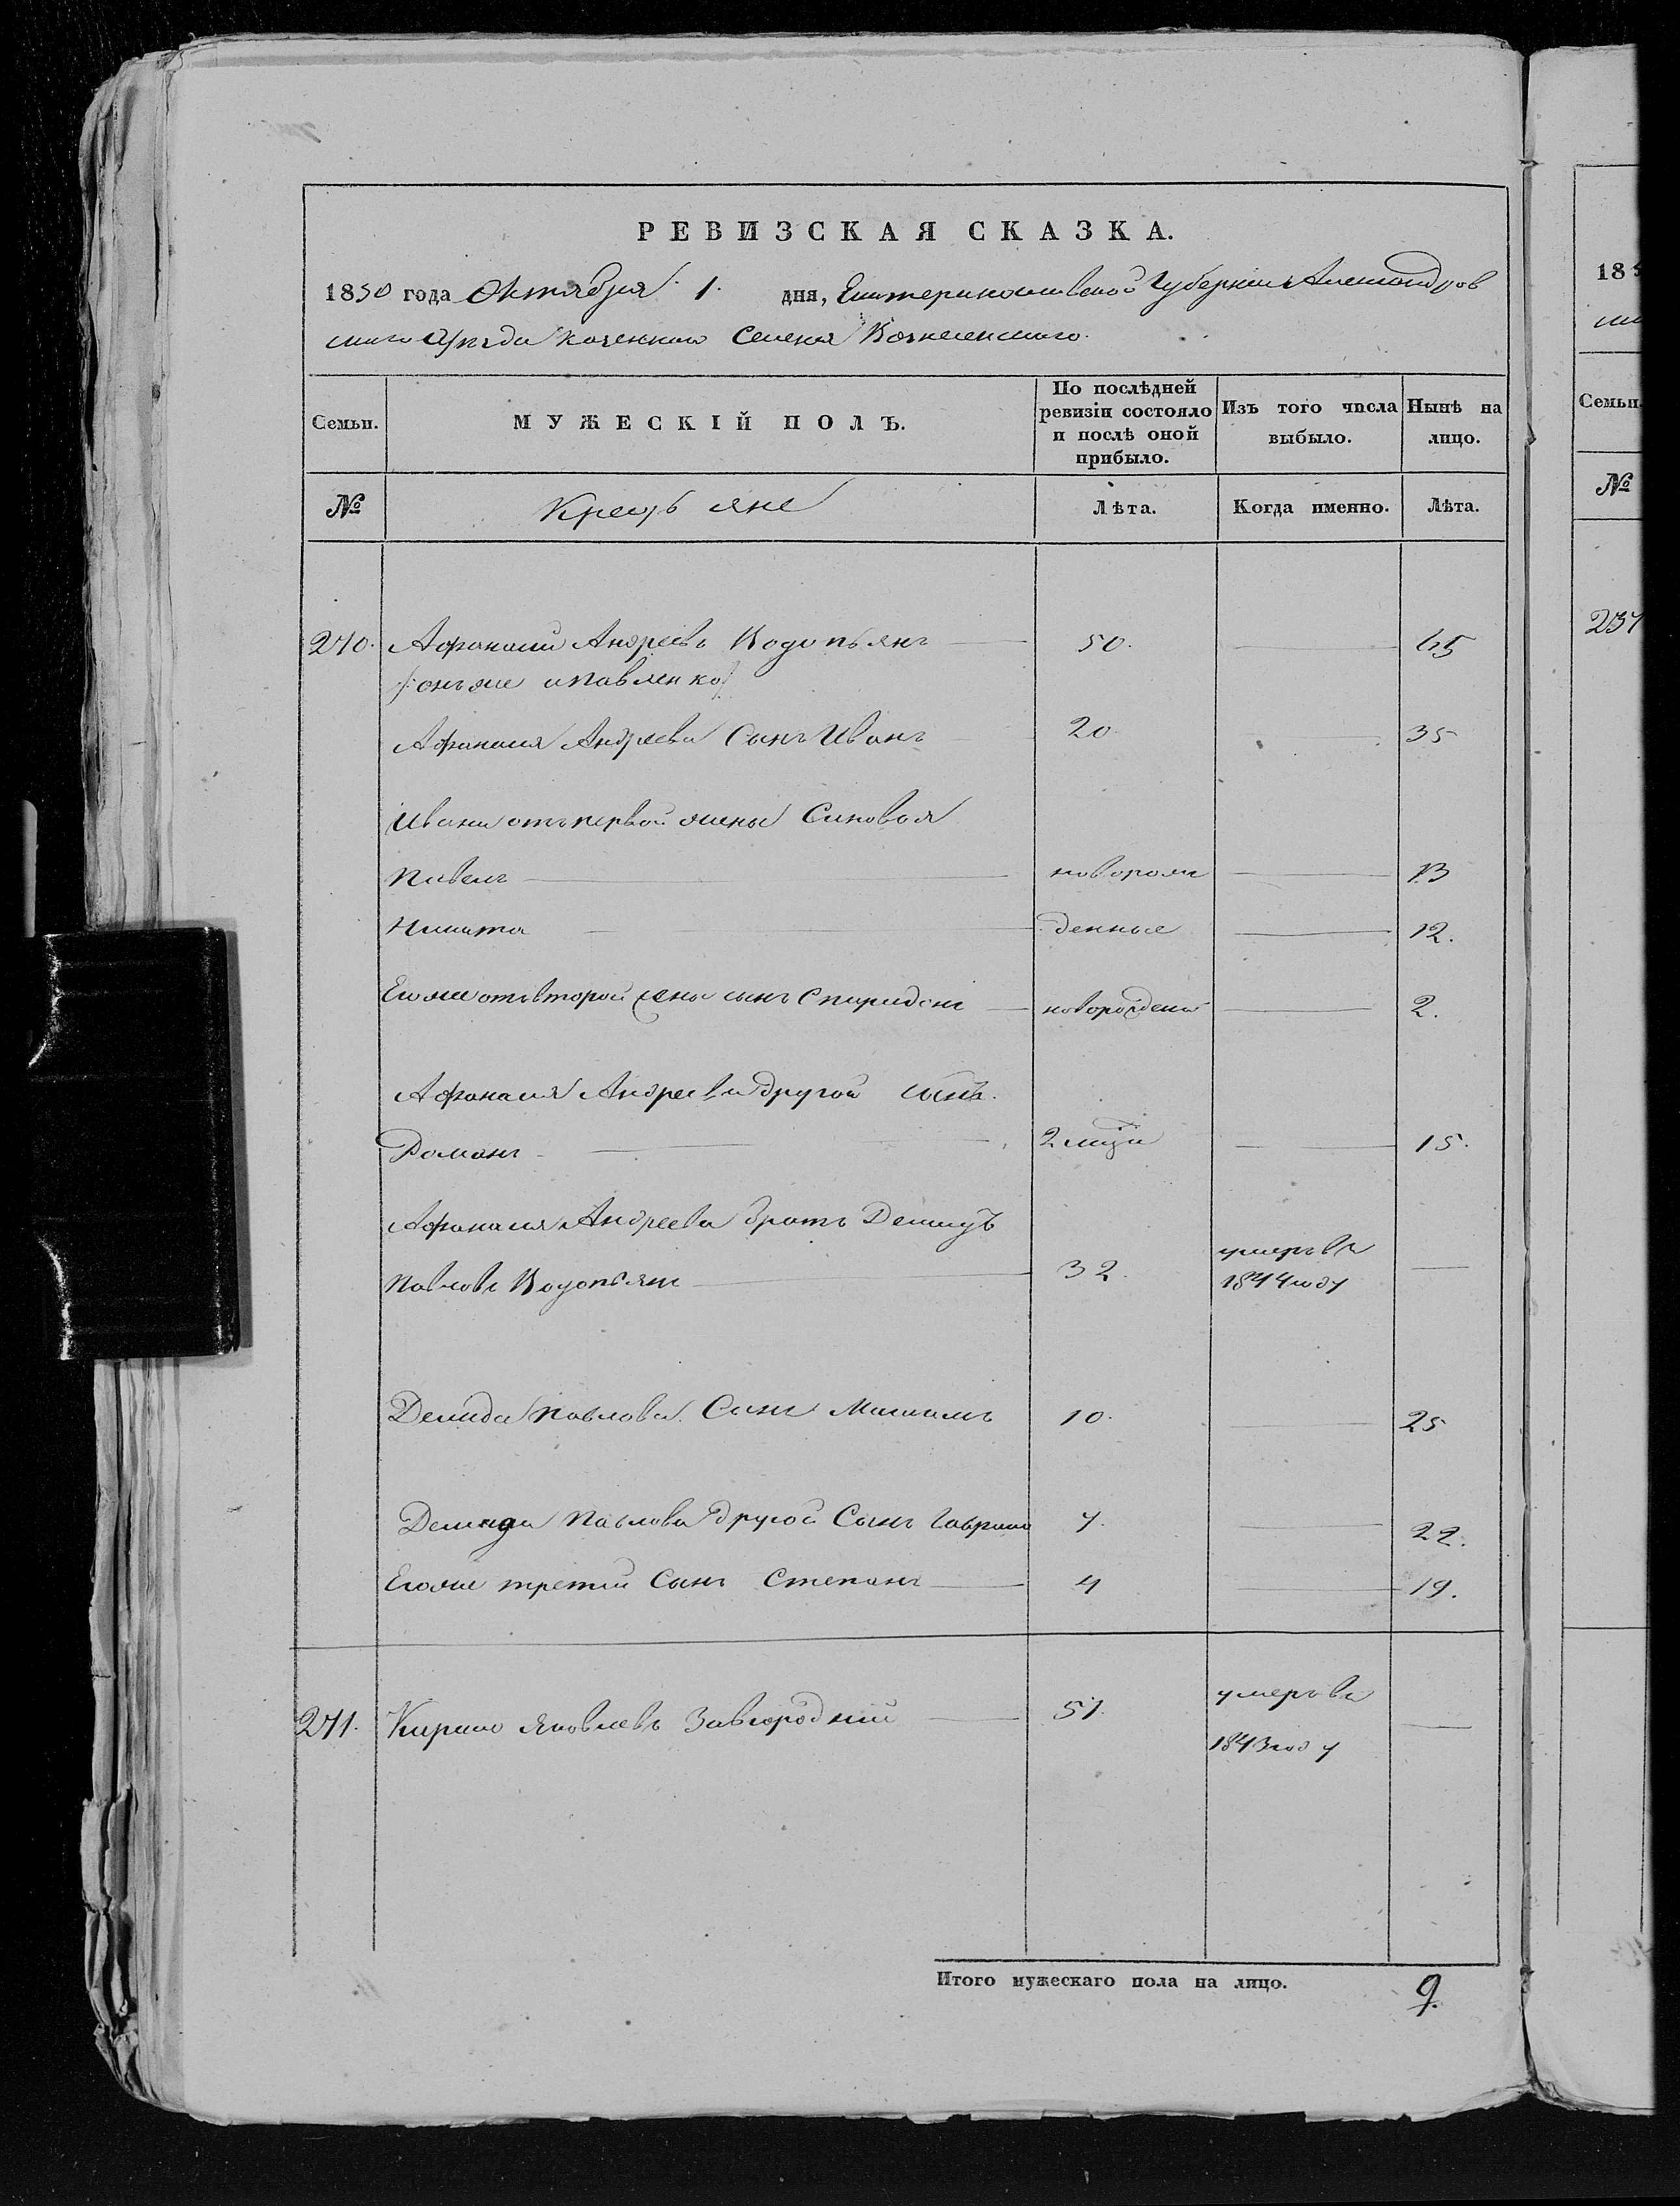 РЕВИЗСКАЯ СКАЗКА.
1850 года Октября 1. дня, Екатеринославской Губернии Александров
скаго Уѣзда казеннаго Селенія Вознесенскаго.
Семьи. МУЖЕСКІЙ ПОЛЪ. По послѣдней ревизіи состояло и послѣ оной прибыло. Изъ того числа выбыло. Нынѣ на лицо.
№ Крестьяне Лѣта. Когда именно. Лѣта.
240. Афанасій Андреевъ Водопьянъ 50. 65
онъ же и Павленко
Афанасія Андреева Сынъ Иванъ 20 35
Ивана отъ первой жены Синовья
Павелъ новорож 13
Никита денные 12.
Его же отъ второй жены сынъ Спиридонъ новорожденъ 2.
Афанасія Андреева другой сынъ.
Романъ 2 мѣся 15.
Афанасія Андреева братъ Демидъ
Павловъ Водопьянъ 32. умеръ въ 1844 году
Демида Павлова Сынъ Максимъ 10. 25
Демида Павлова другой Сынъ Гаврило 7. 22.
Его же третій Сынъ Степанъ 4 19.
241. Кирило Яковлевъ Завгородній 57. умеръ въ
1843 году
Итого мужескаго пола на лицо. 9.
18
Семьи.
№
237